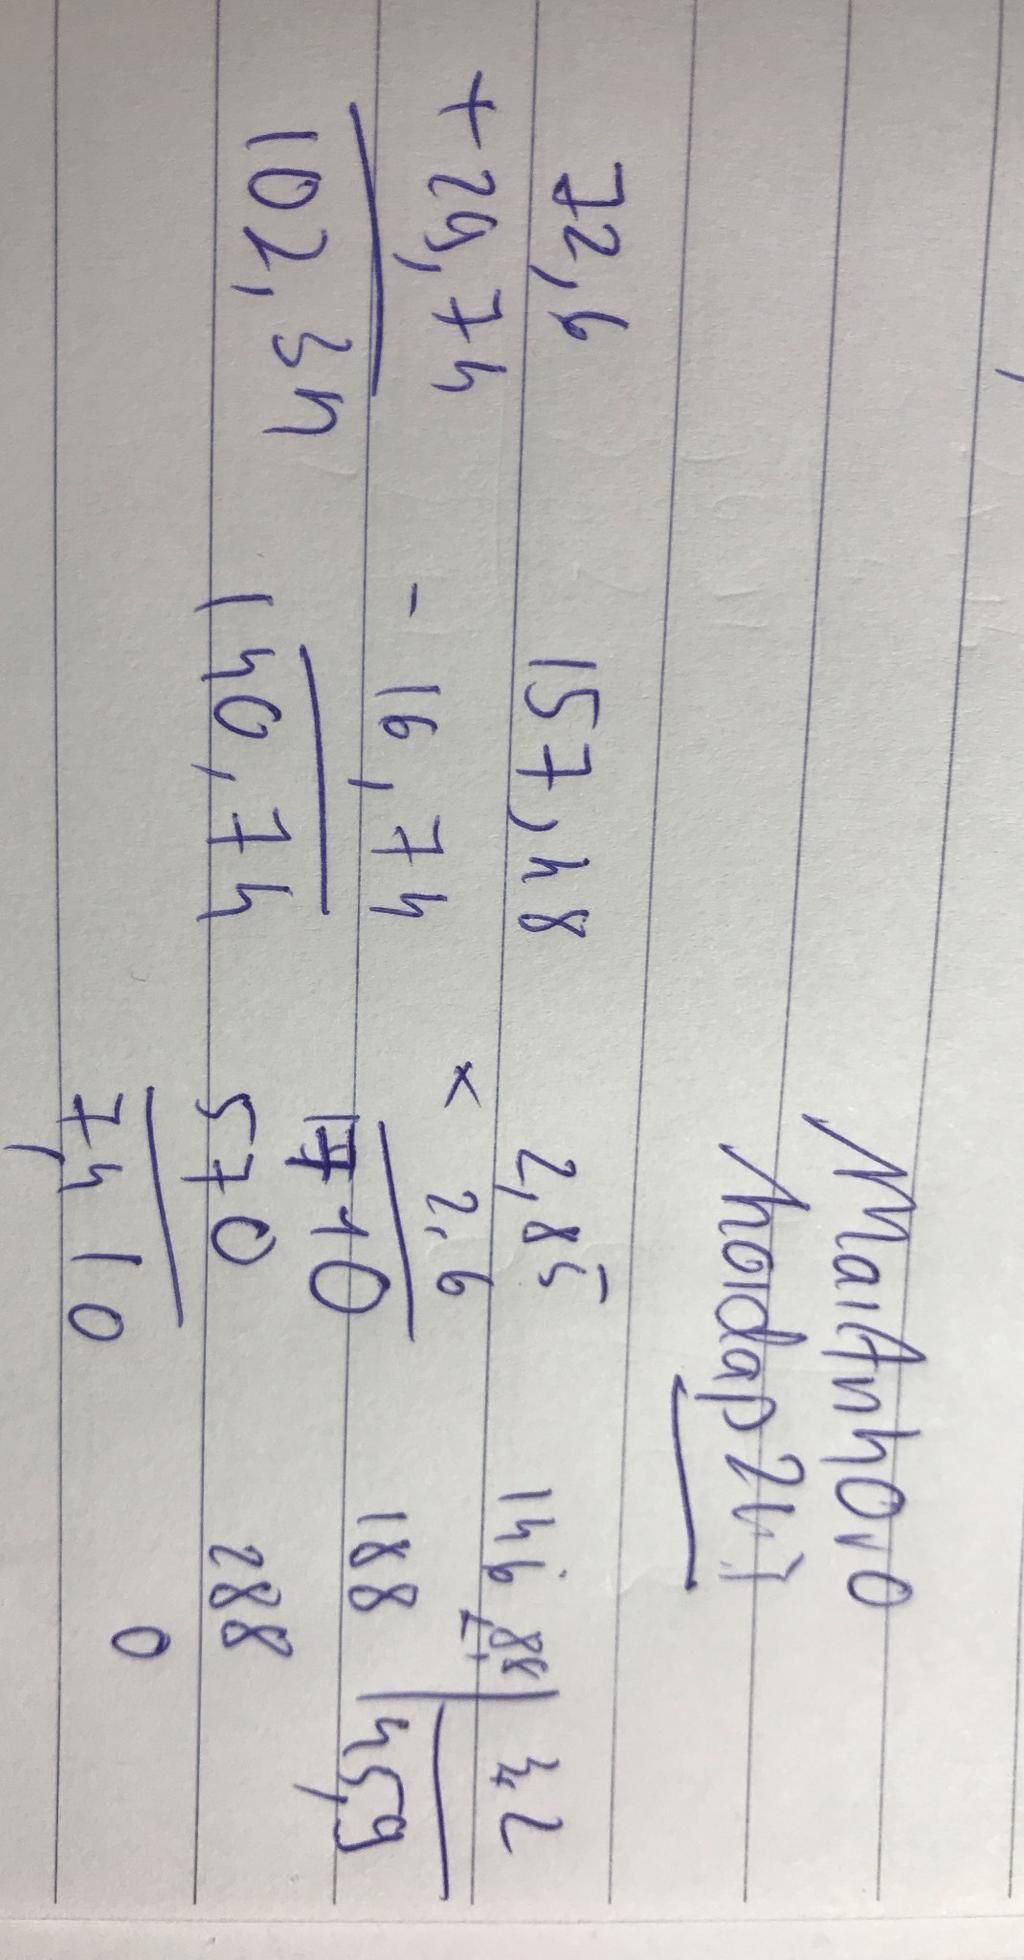 MaiAnhOvO
hoidap247
72,6 157,48 2,85 146,88 3,2
+ 29,74 - 16,74 × 2,6 188 45,9
102,34 140,74 1710 288
570 0
7,410